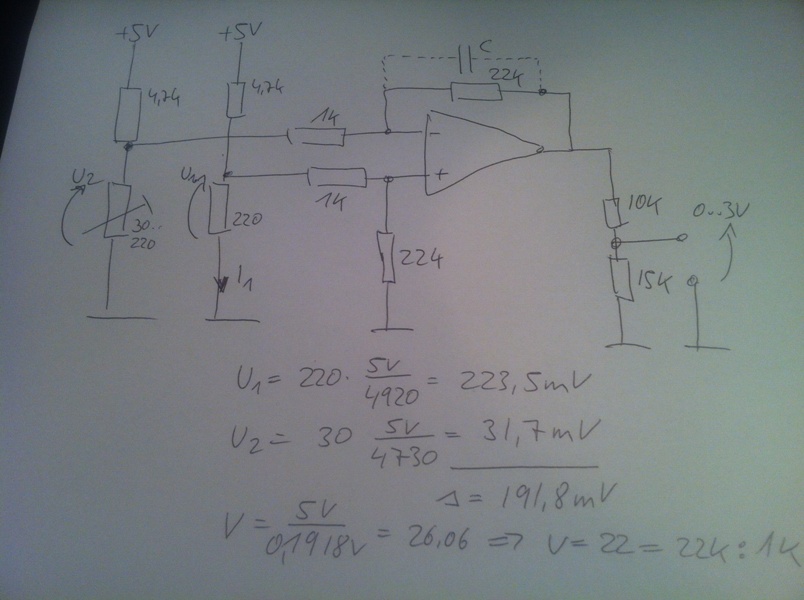 +5V +5V
C
22k
4,7k 4,7k
1K
−
U2 U1 +
1K
30..
220
220
22k
10K 0..3V
I1
15K
U1 = 220 · 5V/4920 = 223,5mV
U2 = 30 5V/4730 = 31,7mV
Δ = 191,8mV
V = 5V/0,1918V = 26,06 ⇒ V = 22 = 22K : 1K